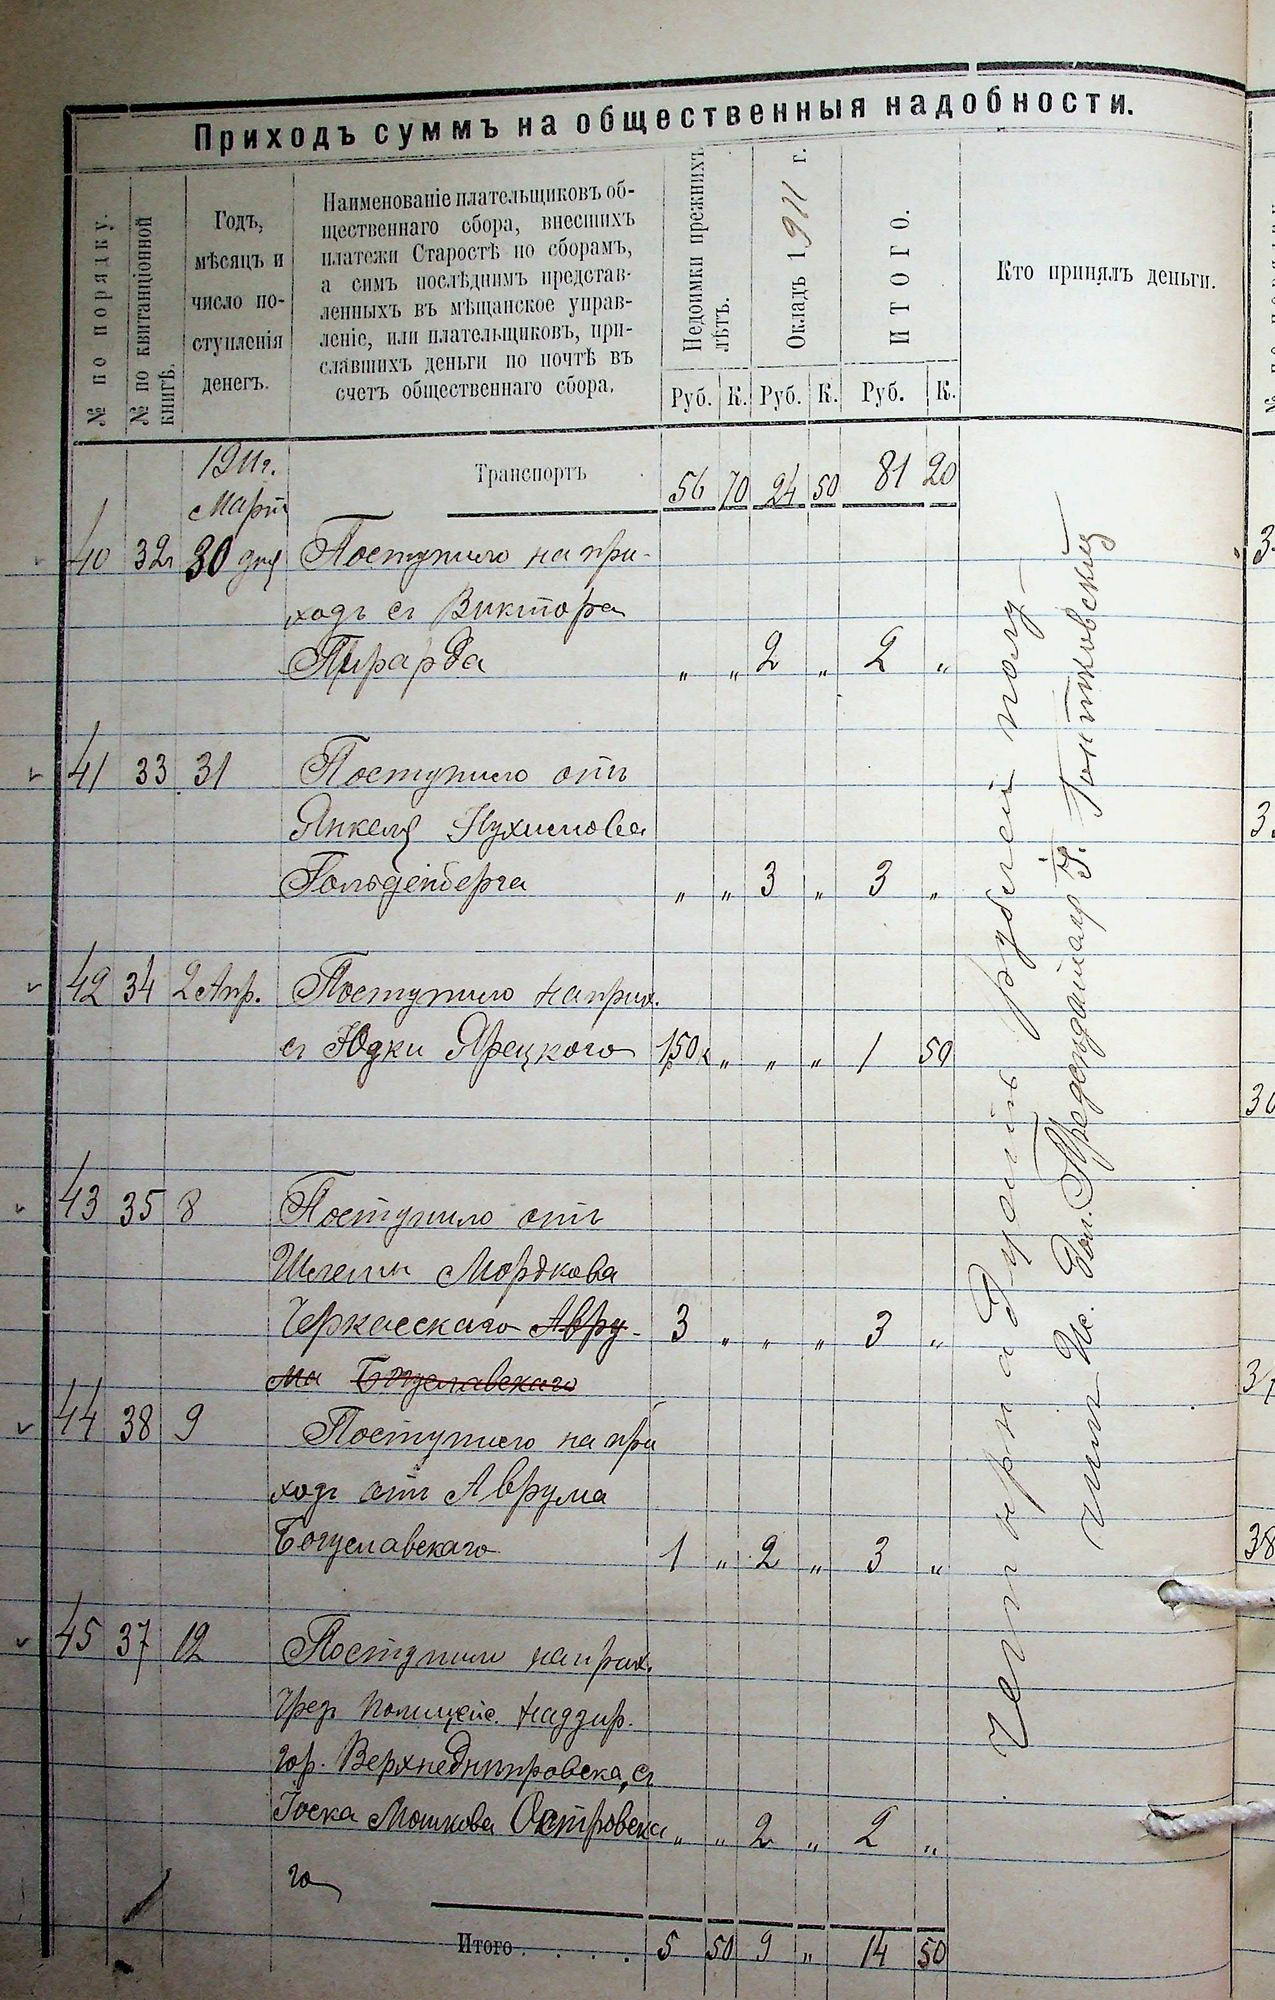 Приходъ суммъ на общественныя надобности.
№ по порядку.
№ по квитанціонной
книгѣ.
Годъ,
мѣсяцъ и
число по-
ступленія
денегъ.
Наименованіе плательщиковъ об-
щественнаго сбора, внесшихъ
платежи Старостѣ по сборамъ,
а симъ послѣднимъ представ-
ленныхъ въ мѣщанское управ-
леніе, или плательщиковъ, при-
славшихъ деньги по почтѣ въ
счетъ общественнаго сбора.
Недоимки прежнихъ
лѣтъ.
Окладъ 1911 г.
ИТОГО.
Кто принялъ деньги.
Руб. К. Руб. К. Руб. К.
1911г. Транспортъ 56 70 24 50 81 20
Мартъ
40 32 30 дня Поступило на при-
ходъ съ Виктора
" " 2 " 2 "
41 33 31 Поступило отъ
Янкеля Нухимова
Гольденберга " " 3 " 3 "
42 34 2 Апр. Поступило на прих.
съ Юдки Ярецкаго 1р50к " " " 1 50
43 35 8 Поступило отъ
Шлемы Мордкова
Черкасскаго Авру- 3 " " " 3 "
ма Богуславскаго
44 38 9 Поступило на при
ходъ отъ Аврума
Богуславскаго 1 " 2 " 3 "
45 37 12 Поступило на прих.
чрез Полицейс. Надзир.
гор. Верхнеднѣпровска, съ
Іоска Мошкова Островска " " 2 " 2 "
го
Итого . . . . 5 50 9 " 14 50
Четырнадцать рублей полу-
чилъ Ис. Дол. Предсѣдат. Г. Гонтковскій